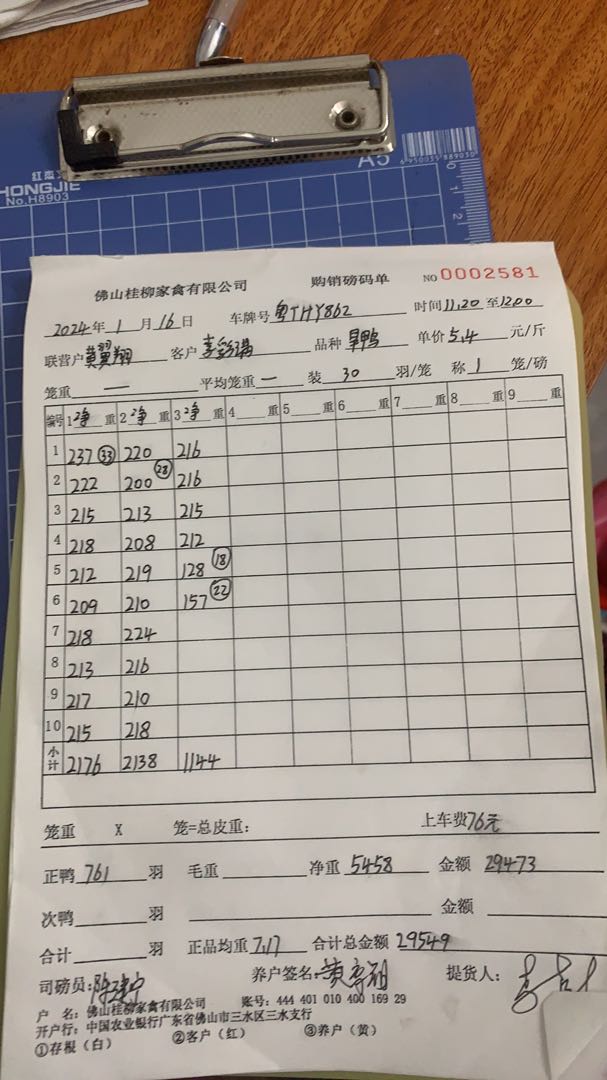 A5
6 950035 889030
红杰
HONGJIE
No.H8903
0 1 2
佛山桂柳家禽有限公司 购销磅码单 NO 0002581
2024年 1 月 16 日 车牌号 粤THY862 时间 11.20 至 12.00
联营户 黄翼翔 客户 品种 旱鸭 单价 5.4 元/斤
笼重 — 平均笼重 — 装 30 羽/笼 称 1 笼/磅
编号 1 净 重 2 净 重 3 净 重 4 重 5 重 6 重 7 重 8 重 9 重
1 237 33 220 216
2 222 200 28 216
3 215 213 215
4 218 208 212
5 212 219 128 18
6 209 210 157 22
7 218 224
8 213 216
9 217 210
10 215 218
小计 2176 2138 1144
笼重 X 笼=总皮重: 上车费 76元
正鸭 761 羽 毛重 净重 5458 金额 29473
次鸭 羽 金额
合计 羽 正品均重 7.17 合计总金额 29549
司磅员: 养户签名: 提货人:
户 名: 佛山桂柳家禽有限公司 账号: 444 401 010 400 169 29
开户行: 中国农业银行广东省佛山市三水区三水支行
①存根（白） ②客户（红） ③养户（黄）